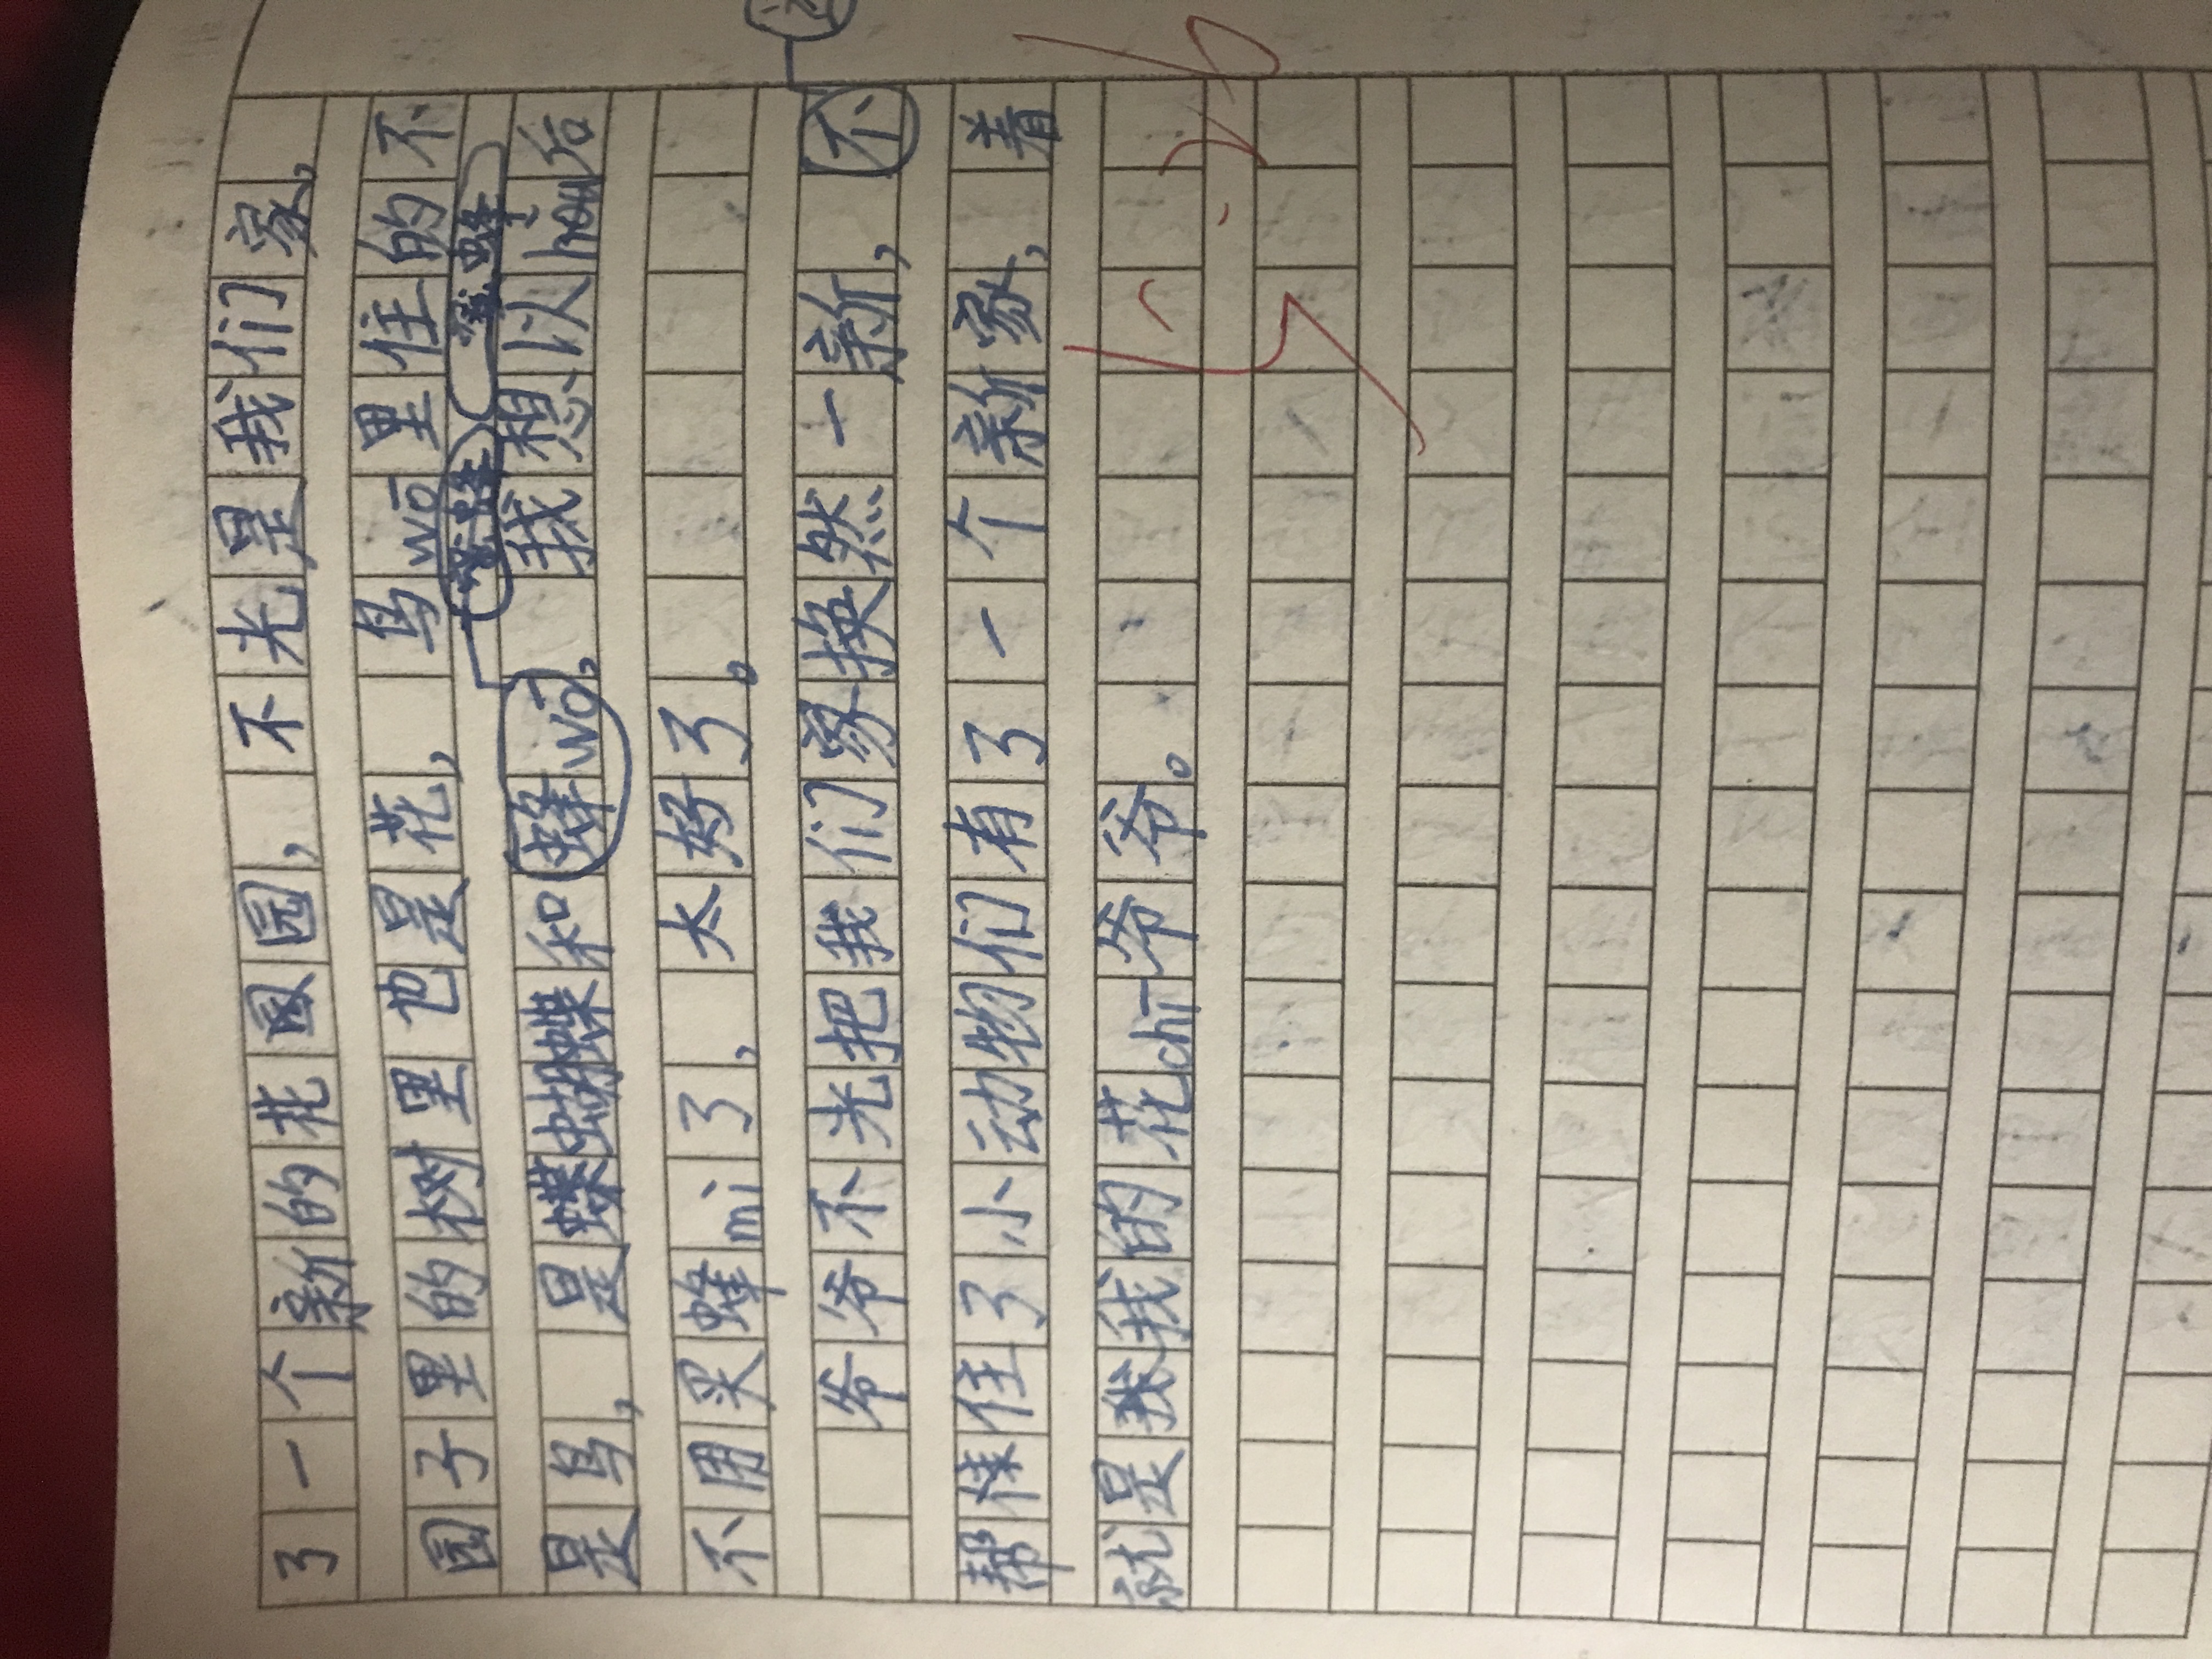 了一个新的花园，不光是我们家，
园子里的树里也是花，鸟wō里住的不
蜜蜂 蜜蜂
是鸟，是蝴蝶和蜂wō，我想以hou后
不用买蜂mì了，太好了。
爷爷不光把我们家换然一新，不
帮住了小动物们有了一个新家，着
就是我我的花chī爷爷。